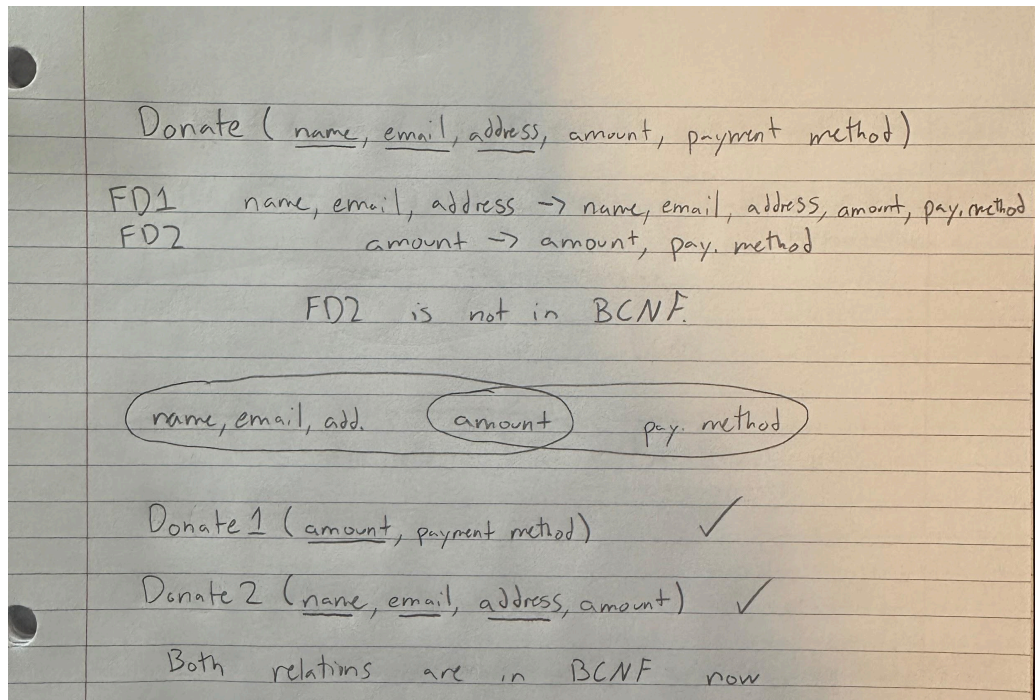 Donate ( name, email, address, amount, payment method)
FD1 name, email, address -> name, email, address, amount, pay. method
FD2 amount -> amount, pay. method
FD2 is not in BCNF.
name, email, add. amount pay. method
Donate 1 ( amount, payment method) ✓
Donate 2 (name, email, address, amount) ✓
Both relations are in BCNF now